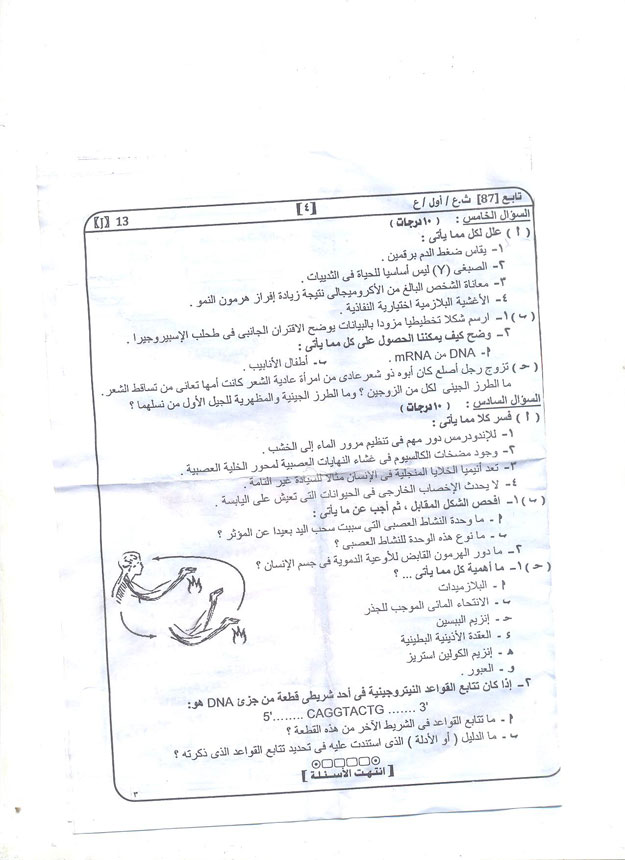 تابع [87] ث.ع / أول / ع
[٤]
[J] 13
السؤال الخامس : ( ١٠ درجات )
( أ ) علل لكل مما يأتى :
١- يقاس ضغط الدم برقمين .
٢- الصبغى (Y) ليس أساسيا للحياة فى الثدييات .
٣- معاناة الشخص البالغ من الأكروميجالى نتيجة زيادة إفراز هرمون النمو .
٤- الأغشية البلازمية اختيارية النفاذية .
( ب ) ١- ارسم شكلا تخطيطيا مزودا بالبيانات يوضح الاقتران الجانبى فى طحلب الإسبيروجيرا .
٢- وضح كيف يمكننا الحصول على كل مما يأتى :
أ- DNA من mRNA . ب- أطفال الأنابيب .
( حـ ) تزوج رجل أصلع كان أبوه ذو شعر عادى من امرأة عادية الشعر كانت أمها تعانى من تساقط الشعر.
ما الطرز الجينى لكل من الزوجين ؟ وما الطرز الجينية والمظهرية للجيل الأول من نسلهما ؟
السؤال السادس : ( ١٠ درجات )
( أ ) فسر كلا مما يأتى :
١- للإندودرمس دور مهم فى تنظيم مرور الماء إلى الخشب .
٢- وجود مضخات الكالسيوم فى غشاء النهايات العصبية لمحور الخلية العصبية .
٣- تعد أنيميا الخلايا المنجلية فى الإنسان مثالا للسيادة غير التامة .
٤- لا يحدث الإخصاب الخارجى فى الحيوانات التى تعيش على اليابسة .
( ب ) ١- افحص الشكل المقابل ، ثم أجب عن ما يأتى :
أ - ما وحدة النشاط العصبى التى سببت سحب اليد بعيدا عن المؤثر ؟
ب - ما نوع هذه الوحدة للنشاط العصبى ؟
٢- ما دور الهرمون القابض للأوعية الدموية فى جسم الإنسان ؟
( حـ ) ١- ما أهمية كل مما يأتى ... ؟
أ - البلازميدات
ب - الانتحاء المائى الموجب للجذر
حـ - إنزيم الببسين
ء - العقدة الأذينية البطينية
هـ - إنزيم الكولين استريز
و - العبور .
٢- إذا كان تتابع القواعد النيتروجينية فى أحد شريطى قطعة من جزئ DNA هو:
5'........ CAGGTACTG ....... 3'
أ - ما تتابع القواعد فى الشريط الآخر من هذه القطعة ؟
ب - ما الدليل ( أو الأدلة ) الذى استندت عليه فى تحديد تتابع القواعد الذى ذكرته ؟
[ انتهت الأسئلة ]
٣